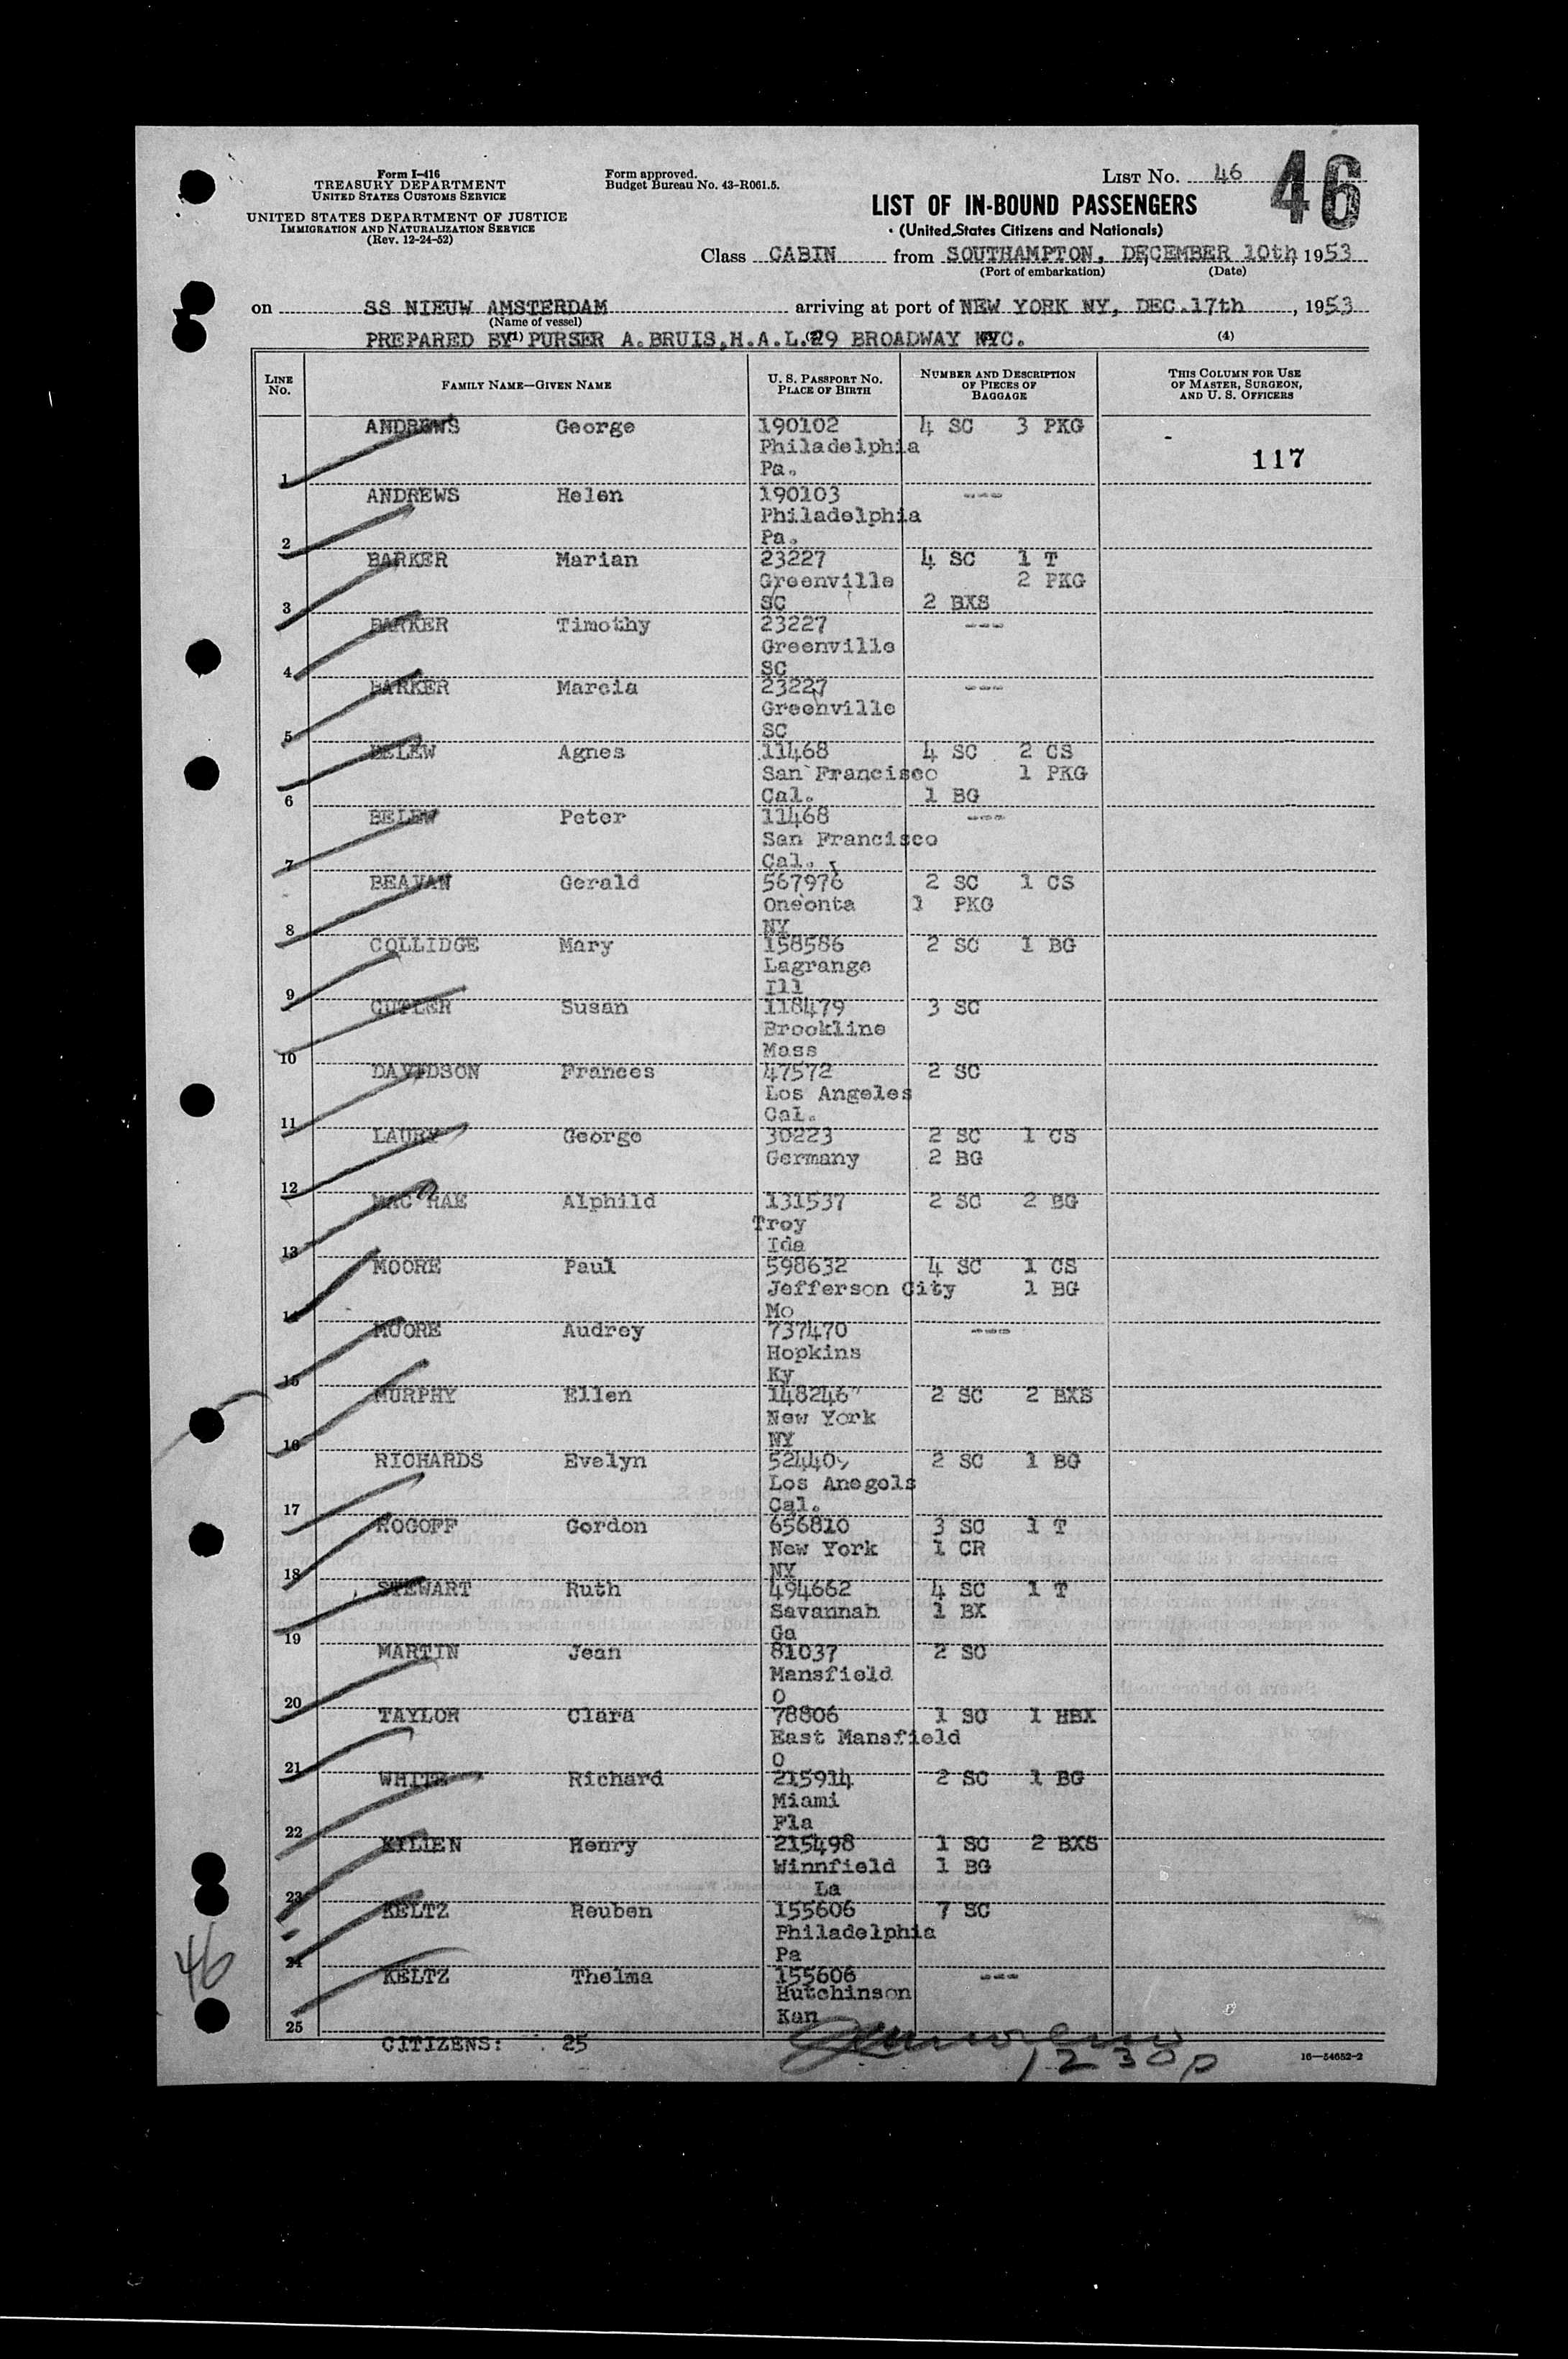 Form I-416
TREASURY DEPARTMENT
UNITED STATES CUSTOMS SERVICE
UNITED STATES DEPARTMENT OF JUSTICE
IMMIGRATION AND NATURALIZATION SERVICE
(Rev. 12-24-52)
Form approved.
Budget Bureau No. 43-R061.5.
LIST NO. 46
46
LIST OF IN-BOUND PASSENGERS
(United States Citizens and Nationals)
Class CABIN from SOUTHAMPTON, DECEMBER 10th, 1953
(Port of embarkation) (Date)
on SS NIEUW AMSTERDAM arriving at port of NEW YORK NY, DEC.17th, 1953
(Name of vessel)
PREPARED BY (1) PURSER A.BRUIS,H.A.L. 29 BROADWAY NYC. (4)
LINE NO. FAMILY NAME—GIVEN NAME U. S. PASSPORT NO. PLACE OF BIRTH NUMBER AND DESCRIPTION OF PIECES OF BAGGAGE THIS COLUMN FOR USE OF MASTER, SURGEON, AND U. S. OFFICERS
ANDREWS George 190102 4 SC 3 PKG
Philadelphia 117
1 Pa.
ANDREWS Helen 190103 ---
Philadelphia
2 Pa.
BARKER Marian 23227 4 SC 1 T
Greenville 2 PKG
3 SC 2 BXS
BARKER Timothy 23227 ---
Greenville
4 SC
BARKER Marcia 23227 ---
Greenville
5 SC
BELEW Agnes 11468 4 SC 2 CS
San Francisco 1 PKG
6 Cal. 1 BG
BELEW Peter 11468 ---
San Francisco
7 Cal.
BEAVAN Gerald 567976 2 SC 1 CS
Oneonta 1 PKG
8 NY
COLLIDGE Mary 158586 2 SC 1 BG
Lagrange
9 Ill
CUTLER Susan 118479 3 SC
Brookline
10 Mass
DAVIDSON Frances 47572 2 SC
Los Angeles
11 Cal.
LAURY George 30223 2 SC 1 CS
Germany 2 BG
12
MAC RAE Alphild 131537 2 SC 2 BG
Troy
13 Ida
MOORE Paul 598632 4 SC 1 CS
Jefferson City 1 BG
14 Mo
MOORE Audrey 737470 ---
Hopkins
15 Ky
MURPHY Ellen 148246 2 SC 2 BXS
New York
16 NY
RICHARDS Evelyn 2 SC 1 BG
Los Anegols
17 Cal.
ROGOFF Gordon 656810 3 SC 1 T
New York 1 CR
18 NY
STEWART Ruth 494662 4 SC 1 T
Savannah 1 BX
19 Ga
MARTIN Jean 81037 2 SC
Mansfield
20 O
TAYLOR Clara 78806 1 SC 1 HBX
East Mansfield
21 O
WHITE Richard 215914 2 SC 1 BG
Miami
22 Fla
KILIEN Henry 215498 1 SC 2 BXS
Winnfield 1 BG
23 La
KELTZ Reuben 155606 7 SC
Philadelphia
24 Pa
KELTZ Thelma 155606 ---
Hutchinson
25 Kan
CITIZENS: 25
1230p
16—54652-2
46